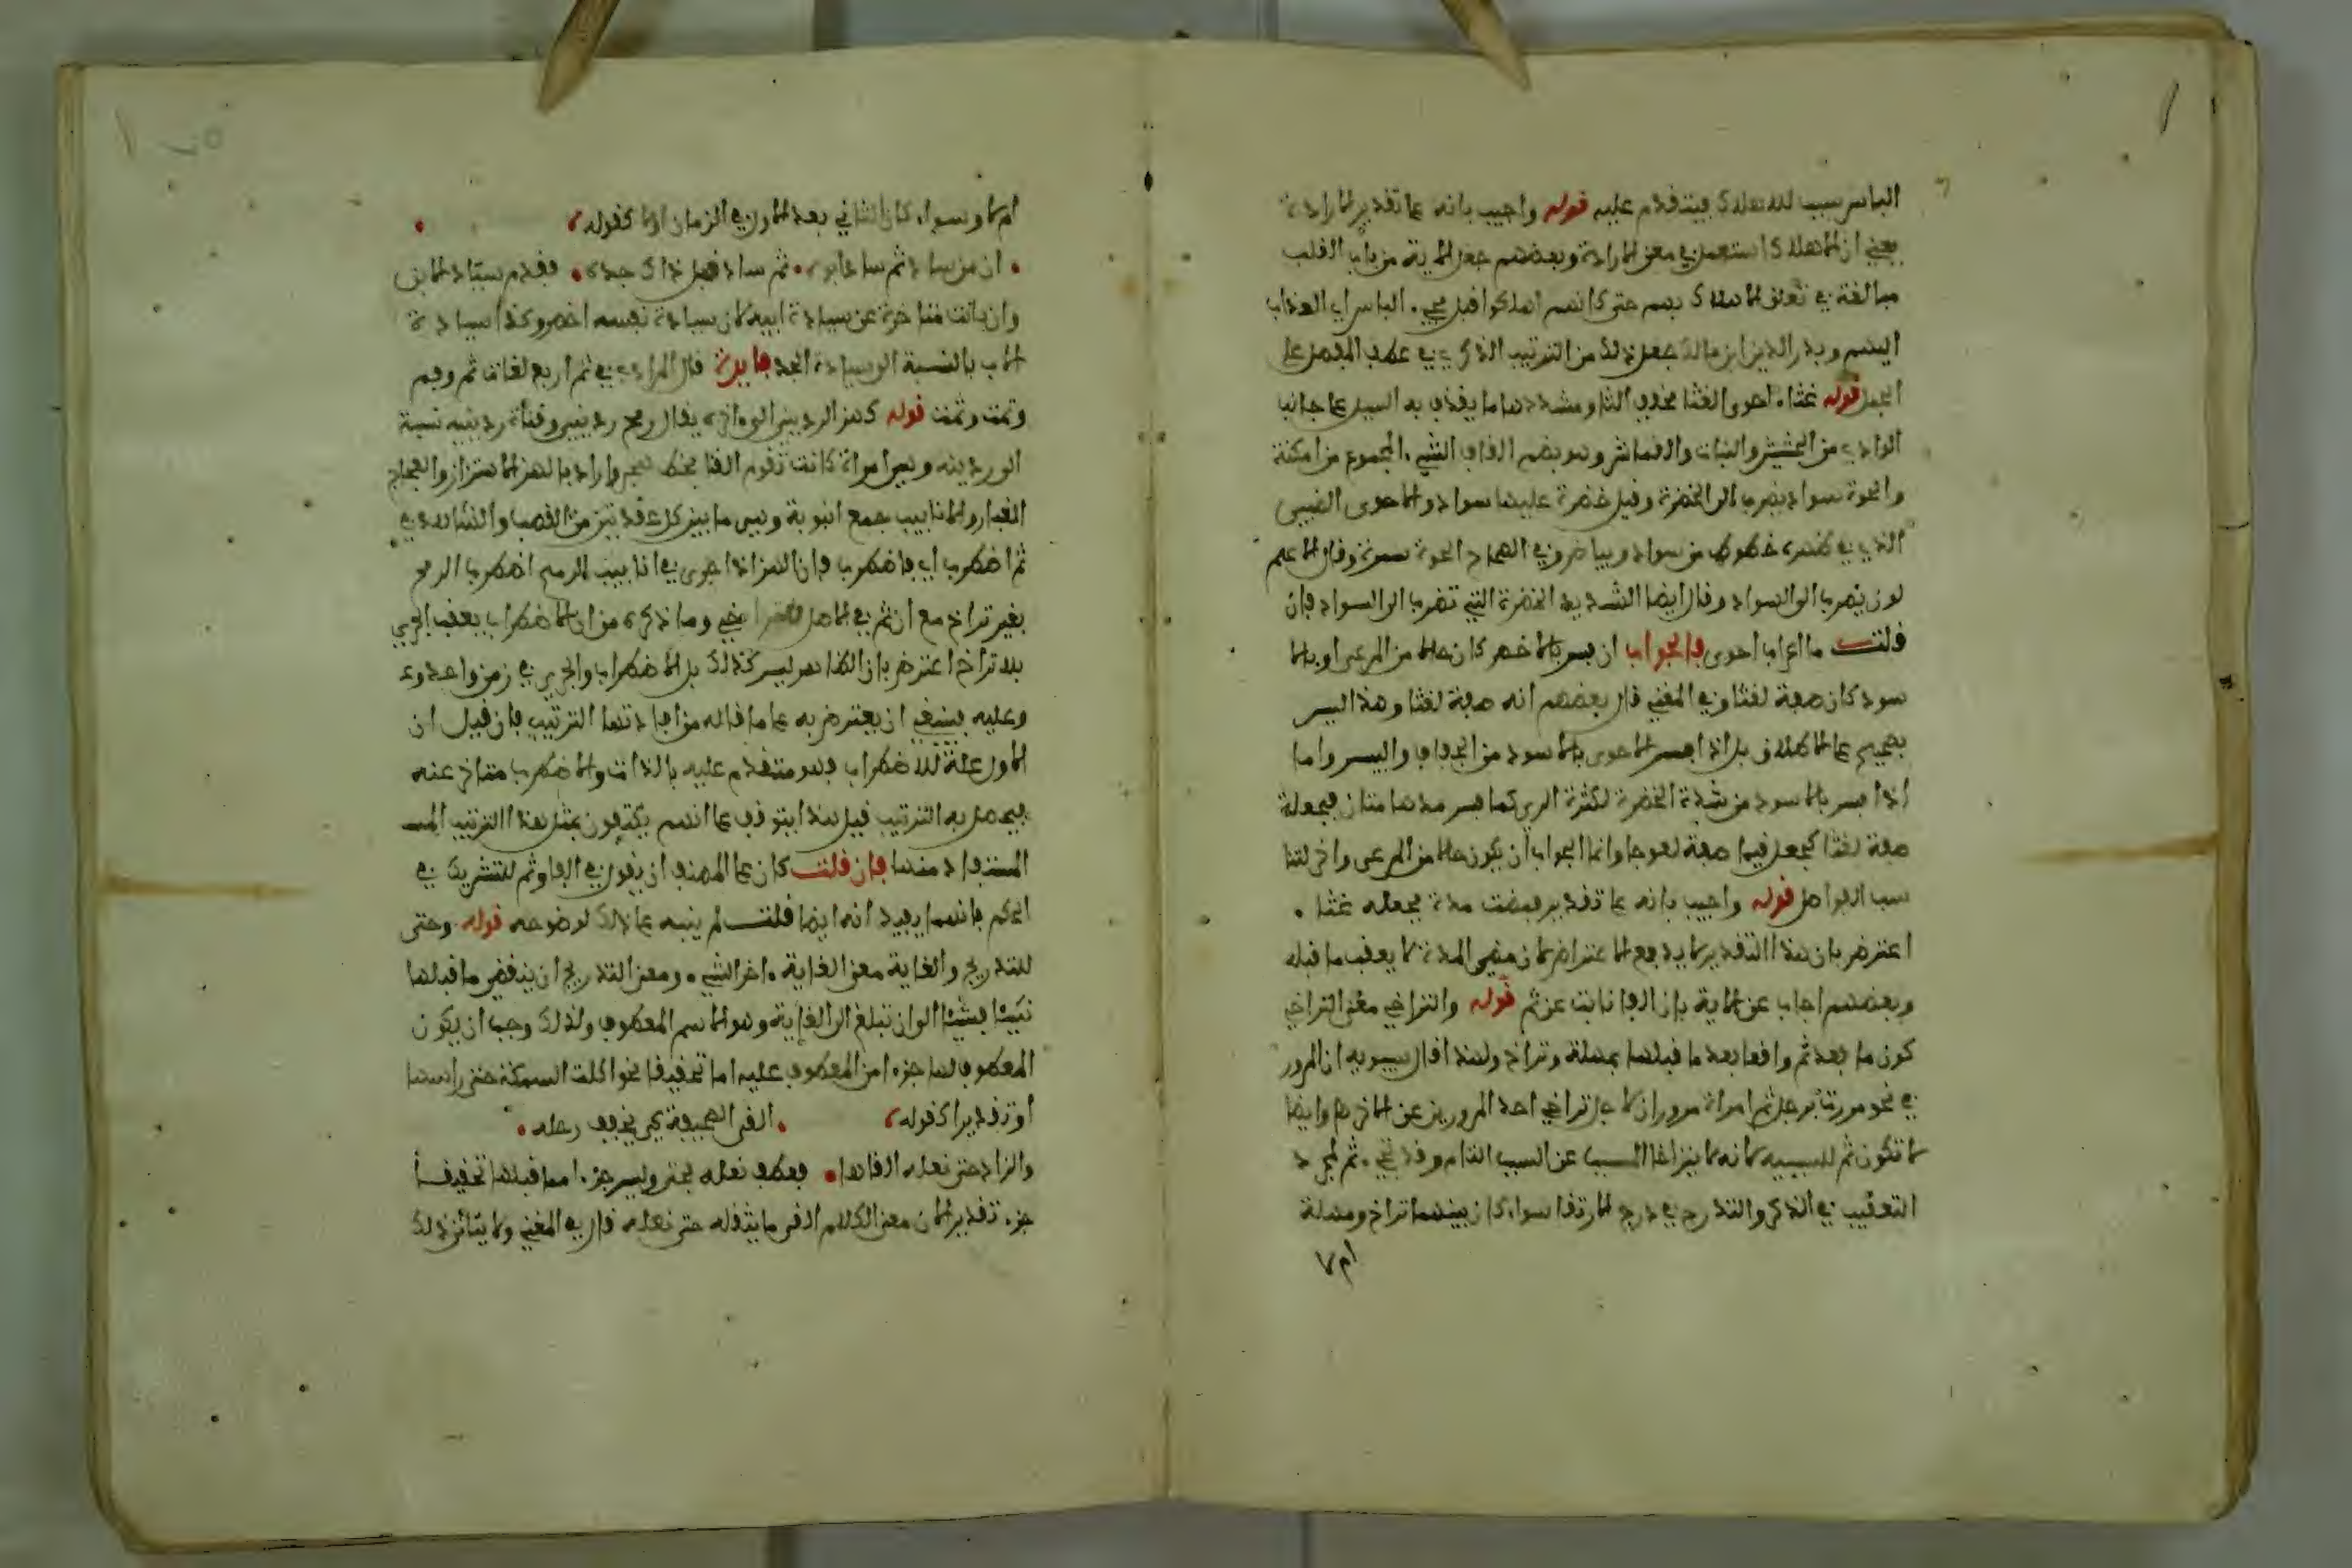 الباس سبب للاهلاك فيتقدم عليه قوله واجيب بانه على تقدير الارادة
يعني ان الاهلاك استعمل في معنى الارادة وبعضهم جعل الاية من باب القلب
مبالغة في تعلق الاهلاك بهم حتى كانهم اهلكوا قبل مجيء الباس اي العذاب
اليهم وبدر الدين ابن مالك جعل ذلك من الترتيب الذكري في عطف المفصل على
المجمل قوله غثاء احوى الغثا مخفف الثا ومشددها ما يقذف به السيل على جانب
الوادي من الحشيش والنبات والقماش وهو بضم القاف الشيء المجموع من امكنة
والحوة سواد يضرب الى الخضرة وقيل خضرة عليها سواد والاحوى الضبي
الذي في ظهره خطوط من سواد وبياض وفي الصحاح الحوة سمرة وقال الاعلم
لون يضرب الى السواد وقال ايضا الشديد الخضرة التي تضرب الى السواد فان
قلت ما اعراب احوى فالجواب ان فسر بالاخضر كان حالا من المرعى او بالا
سود كان صفة لغثا وفي المغني قال بعضهم انه صفة لغثا وهذا ليس
بصحيح على الاطلاق بل اذا فسر الاحوى بالاسود من الجفاف واليبس واما
اذا فسر بالاسود من شدة الخضرة لكثرة الري كما فسر مدهامتان فجعله
صفة لغثا كجعل قيما صفة لعوجا وانما الجواب ان يكون حالا من المرعى واخر لتنا
سب الفواصل قوله واجيب بانه على تقدير فمضت مدة فجعله غثا
اعترض بان هذا التقدير لا يدفع الاعتراض لان مضي المدة لا يعقب ما قبله
وبعضهم اجاب عن الاية بان الفا نابت عن ثم قوله والتراخي معنى التراخي
كون ما بعد ثم واقعا بعد ما قبلها بمهلة وتراخ ولهذا قال سيبويه ان المرور
في نحو مررت برجل ثم امراة مروران لاجل تراخي احد المرورين عن الاخر وايضا
لا تكون ثم للسببية لانه لا يتراخا المسبب عن السبب التام وقد تجيء ثم لمجرد
التعقيب في الذكر والتدرج في درج الارتقا سواء كان بينهما تراخ ومهلة
ام لا
ام لا وسواء كان الثاني بعد الاول في الزمان او لا كقوله
ان من ساد ثم ساد ابوه ثم ساد قبل ذاك جده فقدم سيادة الابن
وان كانت متاخرة عن سيادة ابيه لان سيادة نفسه اخص وكذا سيادة
الاب بالنسبة الى سيادة الجد فايدة قال المرادي في ثم اربع لغات ثم وفم
وثمت وثمت قوله كهز الرديني الى اخره يقال رمح رديني وقناة ردينية نسبة
الى ردينة وهي امراة كانت تقوم القنا بخط هجر واراد بالهز الاهتزاز والعجاج
الغبار والانابيب جمع انبوبة وهي ما بين كل عقدتين من القصب والشاهد في
ثم اضطرب اي فاضطرب فان الهز اذا جرى في انابيب الرمح اضطرب الرمح
بغير تراخ مع ان ثم في الاصل للتراخي وما ذكره من ان الاضطراب يعقب الجري
بلا تراخ اعترض بان الظاهر ليس كذلك بل الاضطراب والجري في زمن واحد
وعليه فينبغي ان يعترض به على ما قاله من افادتها الترتيب فان قيل ان
الاول علة للاضطراب فهو متقدم عليه بالذات والاضطراب متاخر عنه
فيحصل به الترتيب قيل هذا يتوقف على انهم يكتفون بمثل هذا الترتيب
المستفاد منها فان قلت كان على المصنف ان يقول في الفا وثم للتشريك في
الحكم فانهما يفيدانه ايضا قلت لم ينبه على ذلك لوضوحه قوله وحتى
للتدريج والغاية معنى الغاية اخر الشيء ومعنى التدريج ان ينقضي ما قبلها
شيئا فشيئا الى ان تبلغ الى الغاية وهو الاسم المعطوف ولذلك وجب ان يكون
المعطوف بها جزءا من المعطوف عليه اما تحقيقا نحو اكلت السمكة حتى راسها
او تقديرا كقوله القى الصحيفة كي يخفف رحله
والزاد حتى نعله القاها فعطف نعله بحتى وليس جزءا مما قبلها تحقيقا
جزء تقديرا لان معنى الكلام القى ما يثقله حتى نعله قال في المغني ولا يتاتى ذلك